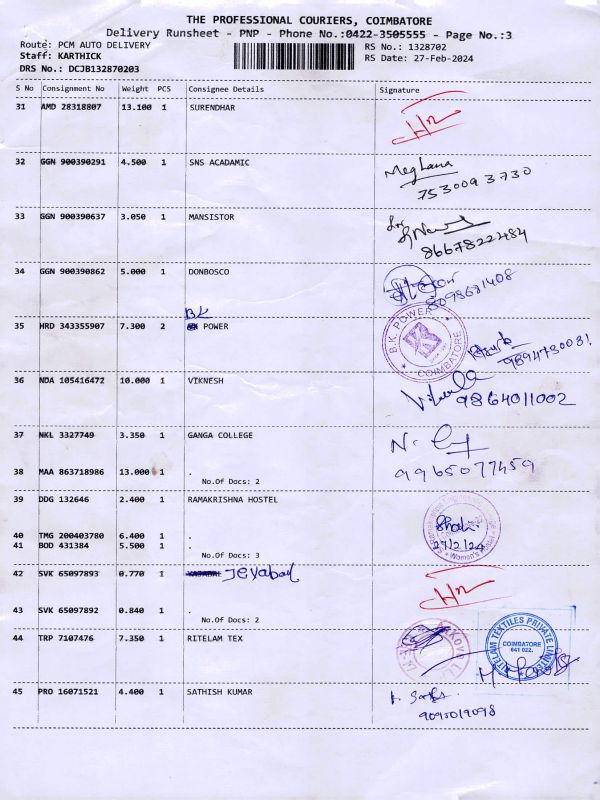 THE PROFESSIONAL COURIERS, COIMBATORE
Delivery Runsheet - PNP - Phone No.:0422-3505555 - Page No.:3
Route: PCM AUTO DELIVERY RS No.: 1328702
Staff: KARTHICK RS Date: 27-Feb-2024
DRS No.: DCJB132870203
S No Consignment No Weight PCS Consignee Details Signature
31 AMD 28318807 13.100 1 SURENDHAR
32 GGN 900390291 4.500 1 SNS ACADAMIC Meghana
7530093730
33 GGN 900390637 3.050 1 MANSISTOR
8667822484
34 GGN 900390862 5.000 1 DONBOSCO
8098681408
BK
35 HRD 343355907 7.300 2 POWER B.K. POWER COIMBATORE
9894730031
36 NDA 105416472 10.000 1 VIKNESH
9864011002
37 NKL 3327749 3.350 1 GANGA COLLEGE
38 MAA 863718986 13.000 1 .
9965077459
No.Of Docs: 2
39 DDG 132646 2.400 1 RAMAKRISHNA HOSTEL
40 TMG 200403780 6.400 1 .
41 BOD 431384 5.500 1 .
27/2/24
No.Of Docs: 3
42 SVK 65097893 0.770 1 Jeyabal
43 SVK 65097892 0.840 1 .
No.Of Docs: 2
44 TRP 7107476 7.350 1 RITELAM TEX
RITELAM TEXTILES PRIVATE LIMITED
COIMBATORE
641 022.
45 PRO 16071521 4.400 1 SATHISH KUMAR